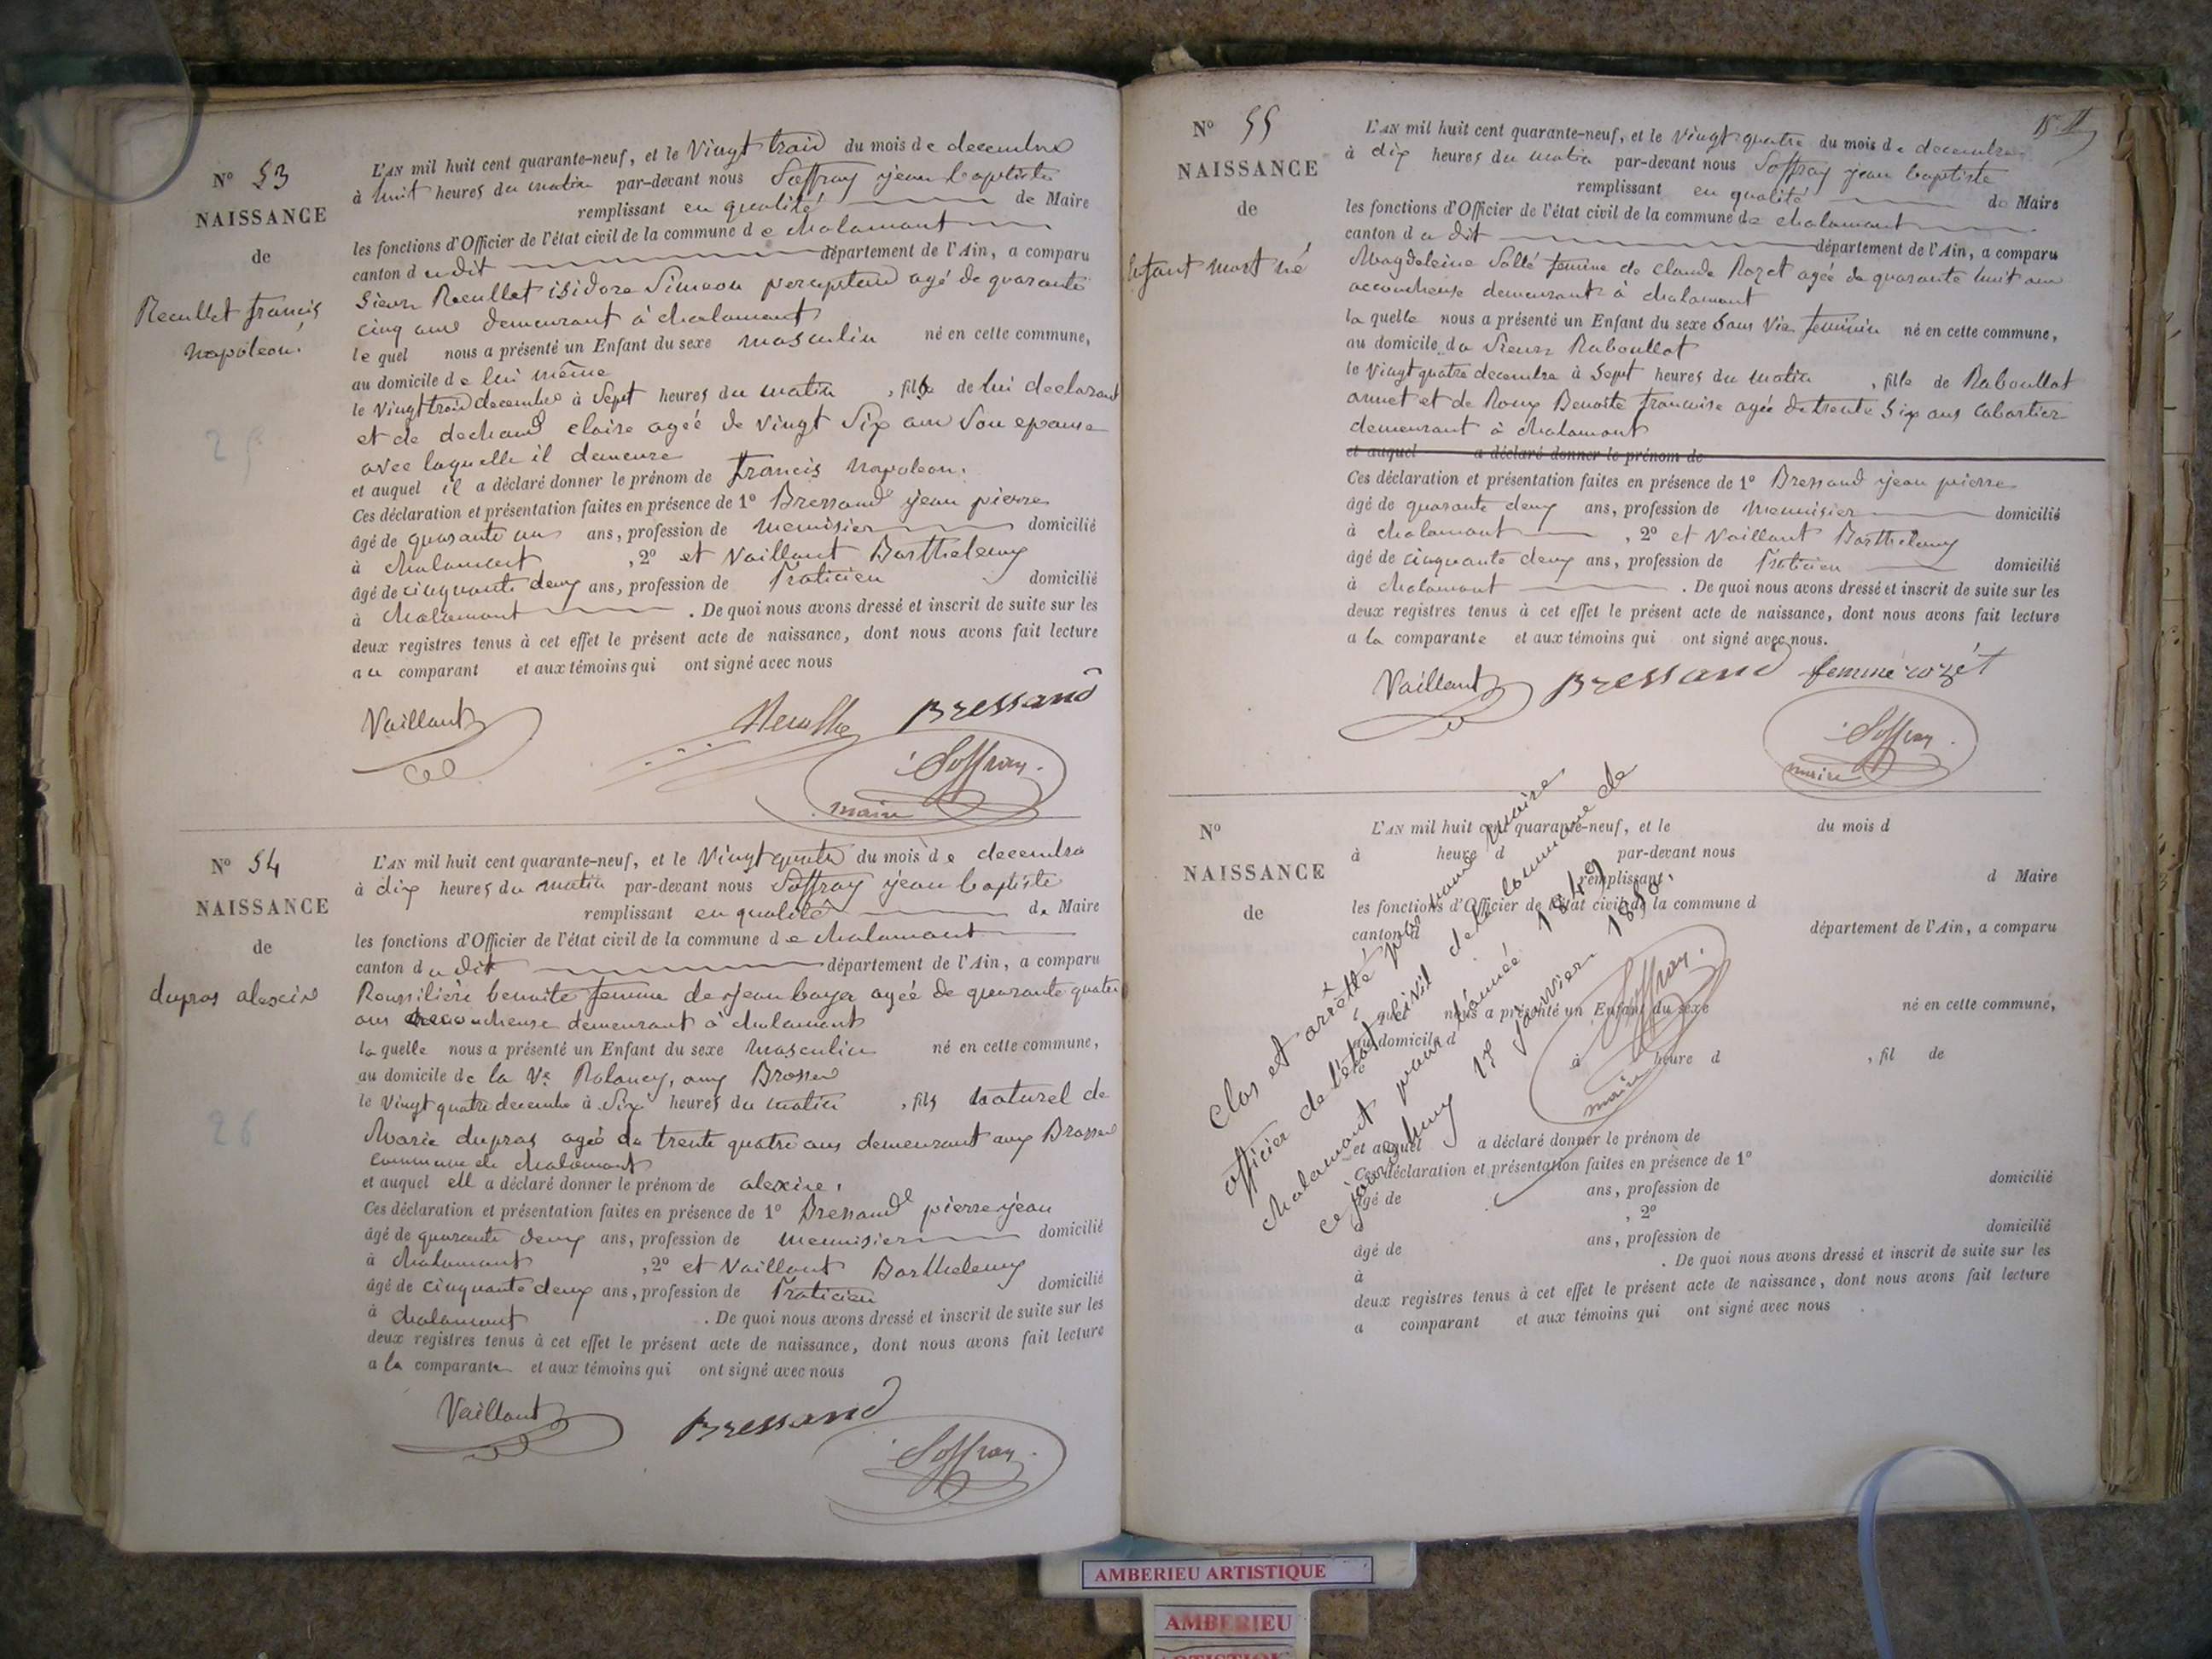 N.º 53
NAISSANCE
de
Recullet francis
Napoléon.
L'AN mil huit cent quarante-neuf, et le Vingt trois du mois de decembre
à huit heures du matin par-devant nous Soffray jean baptiste
remplissant en qualité de Maire
les fonctions d'Officier de l'état civil de la commune de chalamont
canton dudit département de l'Ain, a comparu
Sieur Recullet isidore Simeon percepteur agé de quarante
cinq ans demeurant à chalamont
lequel nous a présenté un Enfant du sexe masculin né en cette commune,
au domicile de lui même
le Vingt trois decembre à Sept heures du matin , fils de lui declarant
et de dechaud claire ageé de vingt Six ans Son epouse
avec laquelle il demeure
et auquel il a déclaré donner le prénom de francis Napoleon.
Ces déclaration et présentation faites en présence de 1º Bressand jean pierre
âgé de quarante un ans, profession de menuisier domicilié
à chalamont , 2º et Vaillant Barthelemy
âgé de cinquante deux ans, profession de Praticien domicilié
à chalamont . De quoi nous avons dressé et inscrit de suite sur les
deux registres tenus à cet effet le présent acte de naissance, dont nous avons fait lecture
au comparant et aux témoins qui ont signé avec nous
Vaillant Bressand
Soffray
maire
Nº 54
NAISSANCE
de
dupras alexin
26
L'AN mil huit cent quarante-neuf, et le Vingt quatre du mois de decembre
à dix heures du matin par-devant nous Soffray jean baptiste
remplissant en qualité de Maire
les fonctions d'Officier de l'état civil de la commune de chalamont
canton dudit département de l'Ain, a comparu
benoite femme de jean boyer ageé de quarante quatre
ans accoucheuse demeurant à chalamont
laquelle nous a présenté un Enfant du sexe masculin né en cette commune,
au domicile de la Ve aux
le Vingt quatre decembre à Six heures du matin , fils naturel de
Marie dupras ageé de trente quatre ans demeurant aux
commune de chalamont
et auquel ell a déclaré donner le prénom de alexine.
Ces déclaration et présentation faites en présence de 1º Bressand pierre jean
âgé de quarante deux ans, profession de menuisier domicilié
à chalamont , 2º et Vaillant Barthelemy
âgé de cinquante deux ans, profession de Praticien domicilié
à chalamont . De quoi nous avons dressé et inscrit de suite sur les
deux registres tenus à cet effet le présent acte de naissance, dont nous avons fait lecture
a la comparante et aux témoins qui ont signé avec nous
Vaillant Bressand
Soffray
Nº 55
NAISSANCE
de
Enfant mort né
L'AN mil huit cent quarante-neuf, et le Vingt quatre du mois de decembre
à dix heures du matin par-devant nous Soffray jean baptiste
remplissant en qualité de Maire
les fonctions d'Officier de l'état civil de la commune de chalamont
canton dudit département de l'Ain, a comparu
Magdeleine Sollé femme de claude Rozet ageé de quarante huit ans
accoucheuse demeurant à chalamont
laquelle nous a présenté un Enfant du sexe Sans Vie feminin né en cette commune,
au domicile du Sieur Raboullot
le Vingt quatre decembre à Sept heures du matin , fille de Raboullot
annet et de Roux Benoite francoise ageé de trente Six ans Cabartier
demeurant à chalamont
et auquel a déclaré donner le prénom de
Ces déclaration et présentation faites en présence de 1º Bressand jean pierre
âgé de quarante deux ans, profession de menuisier domicilié
à chalamont , 2º et Vaillant Barthelemy
âgé de cinquante deux ans, profession de Praticien domicilié
à chalamont . De quoi nous avons dressé et inscrit de suite sur les
deux registres tenus à cet effet le présent acte de naissance, dont nous avons fait lecture
a la comparante et aux témoins qui ont signé avec nous.
Vaillant Bressand femme rozét
Soffray
maire
Nº
NAISSANCE
de
L'AN mil huit cent quarante-neuf, et le du mois d
à heure d par-devant nous
remplissant d Maire
les fonctions d'Officier de l'état civil de la commune d
canton d département de l'Ain, a comparu
quel nous a présenté un Enfant du sexe né en cette commune,
au domicile d
à heure d , fil de
et auquel a déclaré donner le prénom de
Ces déclaration et présentation faites en présence de 1º
âgé de ans, profession de domicilié
, 2º
âgé de ans, profession de domicilié
à . De quoi nous avons dressé et inscrit de suite sur les
deux registres tenus à cet effet le présent acte de naissance, dont nous avons fait lecture
a comparant et aux témoins qui ont signé avec nous
Clos et arrêtté par nous maire
officier de l'état civil de la commune de
chalamont pour l'année 1849
ce jourdhuy 17 janvier 1850.
Soffray.
maire
AMBERIEU ARTISTIQUE
AMBERIEU
ARTISTIQUE